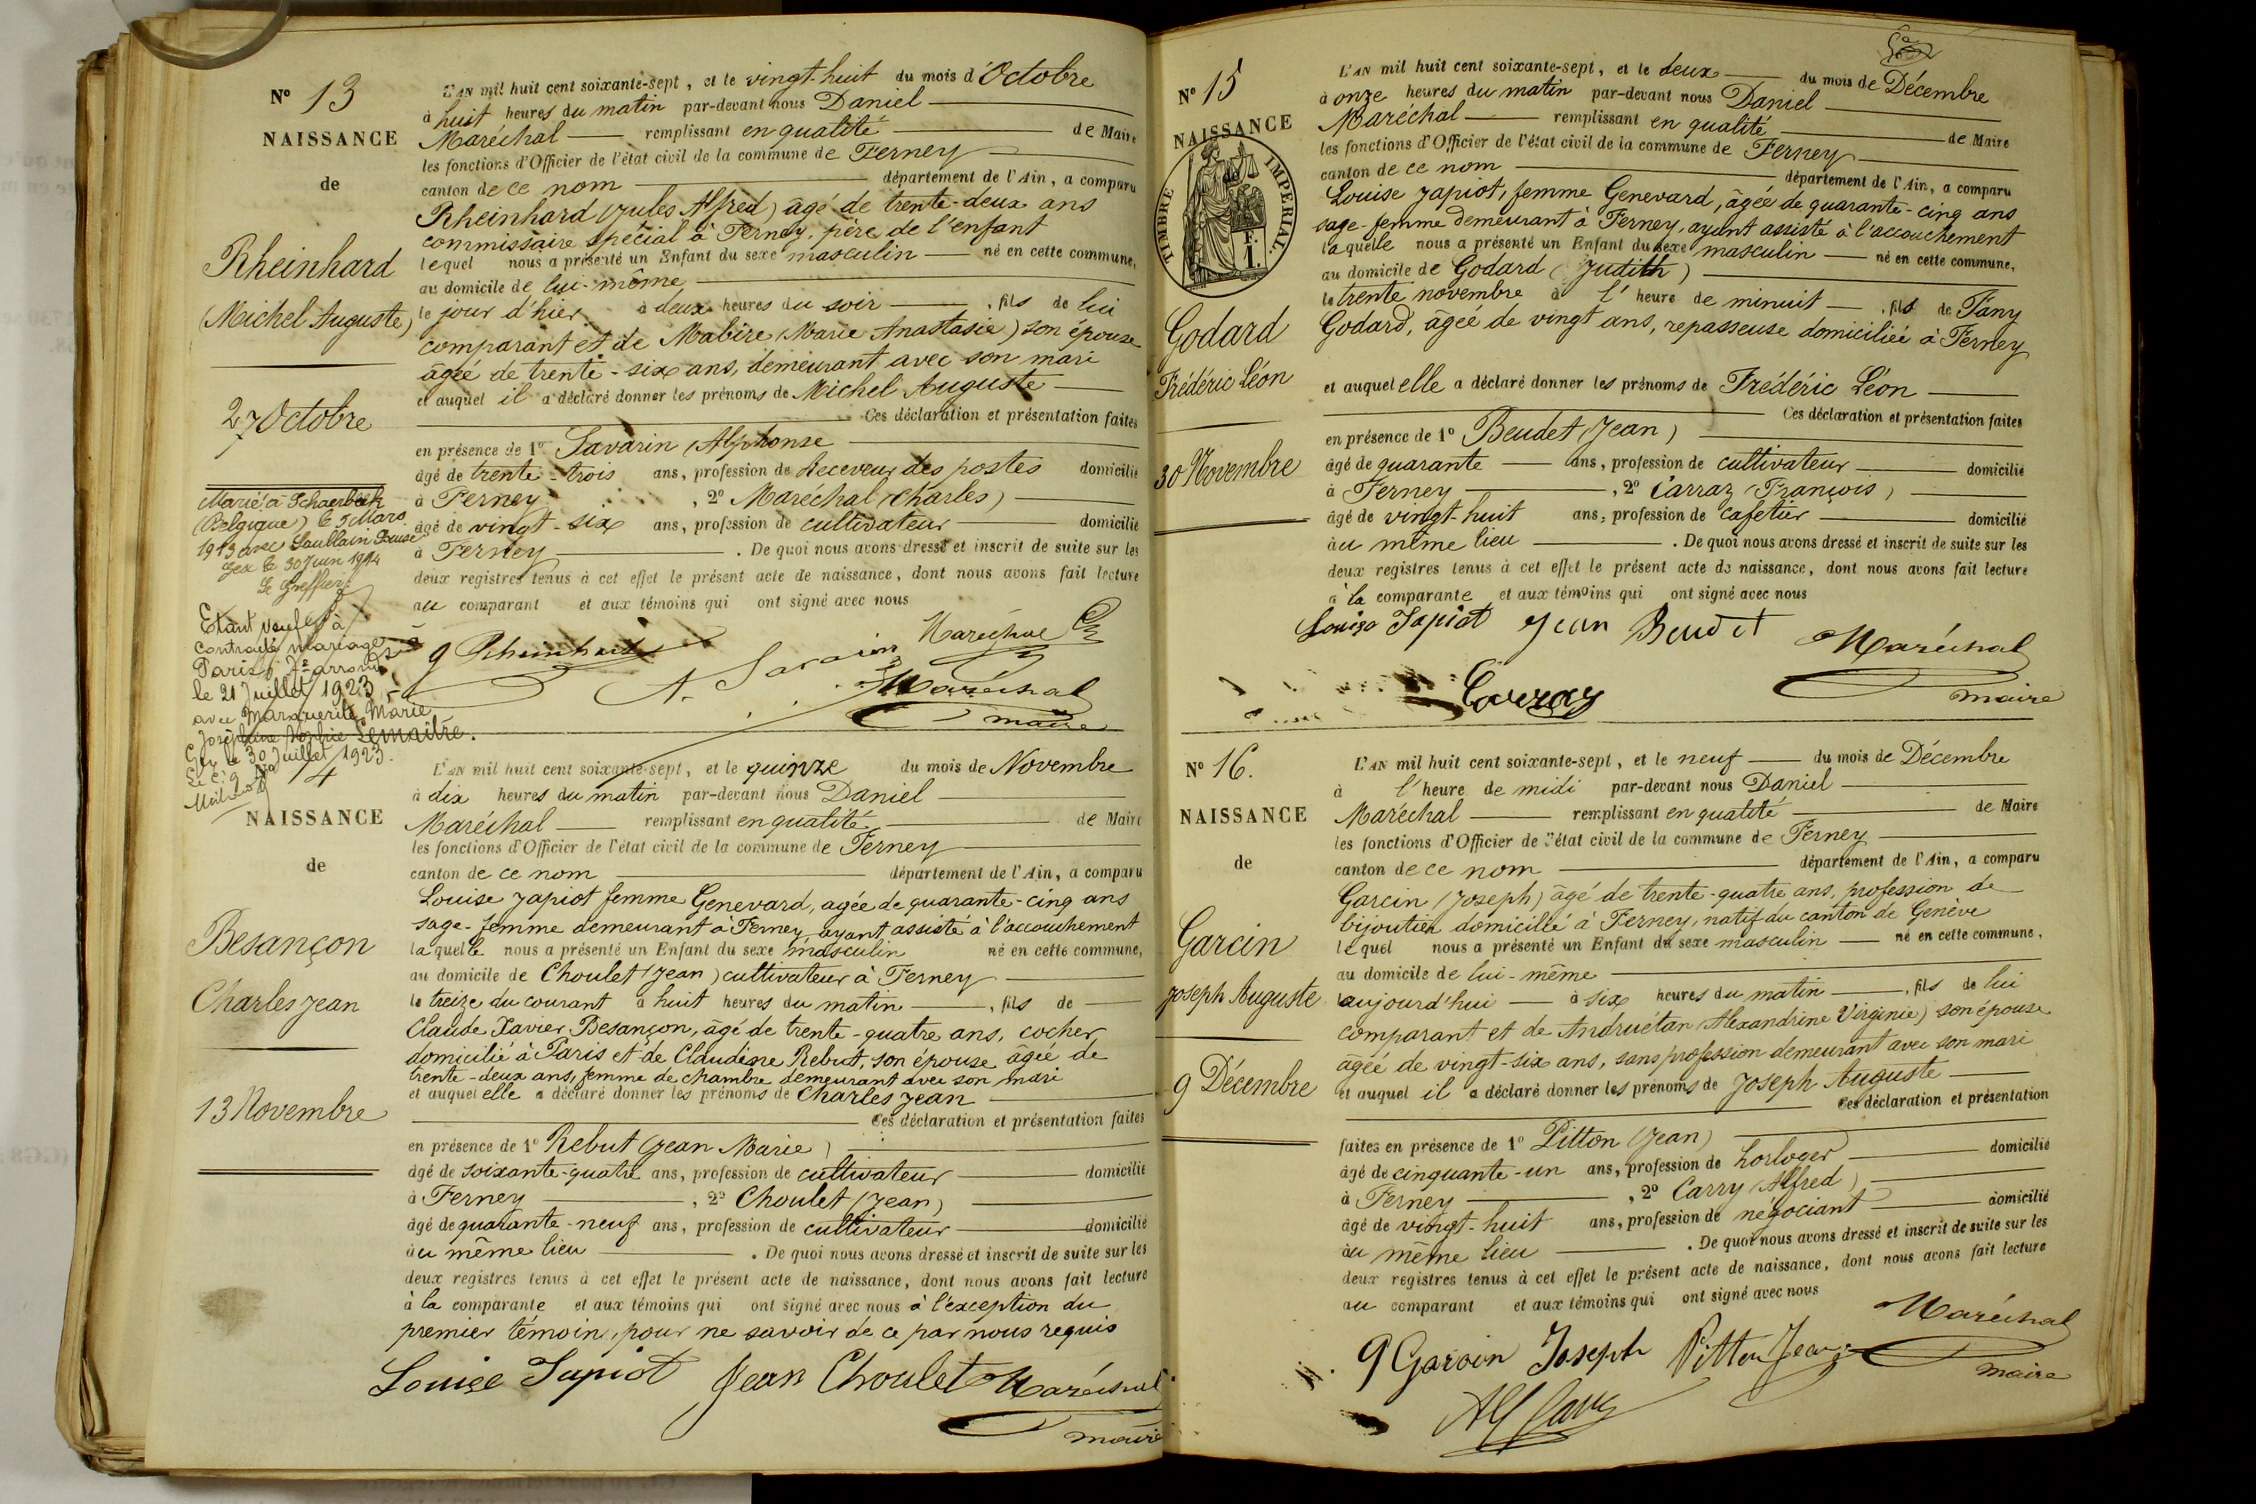 N° 13
NAISSANCE
de
Rheinhard
(Michel Auguste)
27 Octobre
Marié à Schaerbeek
(Belgique) le 5 Mars
1913 avec Saublain Louise
Gex le 30 Juin 1914
Le Greffier
Etant veuf a
contracté mariage à
Paris, 7e arrondt
le 21 Juillet 1923
avec Marguerite Marie
Joséphine Sophie Lemaître.
Gex le 30 Juillet 1923.
L'AN mil huit cent soixante-sept, et le vingt-huit du mois d'Octobre
à huit heures du matin par-devant nous Daniel
Maréchal remplissant en qualité de Maire
les fonctions d'Officier de l'état civil de la commune de Ferney
canton de ce nom département de l'Ain, a comparu
Rheinhard (Jules Alfred) âgé de trente-deux ans
commissaire spécial à Ferney, père de l'enfant
lequel nous a présenté un Enfant du sexe masculin né en cette commune,
au domicile de lui-même,
le jour d'hier à deux heures du soir, fils de lui
comparant et de Mabire (Marie Anastasie) son épouse
âgée de trente-six ans, demeurant avec son mari
et auquel il a déclaré donner les prénoms de Michel Auguste
Ces déclaration et présentation faites
en présence de 1° Savarin (Alphonse
âgé de trente-trois ans, profession de Receveur des postes domicilié
à Ferney, 2° Maréchal (Charles)
âgé de vingt-six ans, profession de cultivateur domicilié
à Ferney. De quoi nous avons dressé et inscrit de suite sur les
deux registres tenus à cet effet le présent acte de naissance, dont nous avons fait lecture
au comparant et aux témoins qui ont signé avec nous
J Rheinhard A. Savarin Maréchal Ch
Maréchal
maire
N° 14
NAISSANCE
de
Besançon
Charles Jean
13 Novembre
L'AN mil huit cent soixante-sept, et le quinze du mois de Novembre
à dix heures du matin par-devant nous Daniel
Maréchal remplissant en qualité de Maire
les fonctions d'Officier de l'état civil de la commune de Ferney
canton de ce nom département de l'Ain, a comparu
Louise Japiot femme Genevard, agée de quarante-cinq ans
sage-femme demeurant à Ferney ayant assisté à l'accouchement
laquelle nous a présenté un Enfant du sexe masculin né en cette commune,
au domicile de Choulet (Jean) cultivateur à Ferney
le treize du courant à huit heures du matin, fils de
Claude Xavier Besançon, âgé de trente-quatre ans, cocher
domicilié à Paris et de Claudine Rebut, son épouse âgée de
trente-deux ans, femme de chambre demeurant avec son mari
et auquel elle a déclaré donner les prénoms de Charles Jean
Ces déclaration et présentation faites
en présence de 1° Rebut (Jean Marie)
âgé de soixante-quatre ans, profession de cultivateur domicilié
à Ferney, 2° Choulet (Jean)
âgé de quarante-neuf ans, profession de cultivateur domicilié
au même lieu. De quoi nous avons dressé et inscrit de suite sur les
deux registres tenus à cet effet le présent acte de naissance, dont nous avons fait lecture
à la comparante et aux témoins qui ont signé avec nous à l'exception du
premier témoin, pour ne savoir de ce par nous requis
Louise Japiot Jean Choulet Maréchal
maire
N° 15
NAISSANCE
TIMBRE IMPERIAL.
Godard
Frédéric Léon
30 Novembre
L'AN mil huit cent soixante-sept, et le deux du mois de Décembre
à onze heures du matin par-devant nous Daniel
Maréchal remplissant en qualité de Maire
les fonctions d'Officier de l'état civil de la commune de Ferney
canton de ce nom département de l'Ain, a comparu
Louise Japiot, femme Genevard, âgée de quarante-cinq ans
sage-femme demeurant à Ferney, ayant assisté à l'accouchement
laquelle nous a présenté un Enfant du sexe masculin né en cette commune,
au domicile de Godard (Judith)
le trente novembre à l'heure de minuit, fils de Fany
Godard, âgée de vingt ans, repasseuse domiciliée à Ferney
et auquel elle a déclaré donner les prénoms de Frédéric Léon
Ces déclaration et présentation faites
en présence de 1° Beudet (Jean)
âgé de quarante ans, profession de cultivateur domicilié
à Ferney, 2° Carraz (François)
âgé de vingt-huit ans, profession de cafetier domicilié
au même lieu. De quoi nous avons dressé et inscrit de suite sur les
deux registres tenus à cet effet le présent acte de naissance, dont nous avons fait lecture
à la comparante et aux témoins qui ont signé avec nous
Louise Japiot Jean Beudet Maréchal
Carraz maire
N° 16.
NAISSANCE
de
Garcin
Joseph Auguste
9 Décembre
L'AN mil huit cent soixante-sept, et le neuf du mois de Décembre
à l'heure de midi par-devant nous Daniel
Maréchal remplissant en qualité de Maire
les fonctions d'Officier de l'état civil de la commune de Ferney
canton de ce nom département de l'Ain, a comparu
Garcin (Joseph) âgé de trente-quatre ans, profession de
bijoutier domicilié à Ferney, natif du canton de Genève
lequel nous a présenté un Enfant du sexe masculin né en cette commune,
au domicile de lui-même
aujourd'hui à six heures du matin, fils de lui
comparant et de Andruétan (Alexandrine Virginie) son épouse
âgée de vingt-six ans, sans profession demeurant avec son mari
et auquel il a déclaré donner les prénoms de Joseph Auguste
Ces déclaration et présentation
faites en présence de 1° Pitton (Jean)
âgé de cinquante-un ans, profession de horloger domicilié
à Ferney, 2° Carry (Alfred)
âgé de vingt-huit ans, profession de négociant domicilié
au même lieu. De quoi nous avons dressé et inscrit de suite sur les
deux registres tenus à cet effet le présent acte de naissance, dont nous avons fait lecture
au comparant et aux témoins qui ont signé avec nous
Garcin Joseph Pitton Jean Maréchal
maire